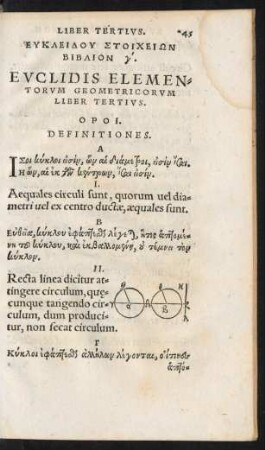 LIBER TERTIVS. 45
ΕΥΚΛΕΙΔΟΥ ΣΤΟΙΧΕΙΩΝ
ΒΙΒΛΙΟΝ γ'.
EVCLIDIS ELEMEN-
TORVM GEOMETRICORVM
LIBER TERTIVS.
ΟΡΟΙ.
DEFINITIONES.
Α
Ισοι κύκλοι εἰσὶν, ὧν αἱ διάμετροι, εἰσὶν ἴσαι
Η ὧν, αἱ ἐκ τῶν κέντρων, ἴσαι εἰσίν.
I.
Aequales circuli sunt, quorum uel dia-
metri uel ex centro ductæ, æquales sunt.
Β
Εὐθεῖα, κύκλου ἐφάπτεσθαι λέγεται, ἥτις ἁπτομέ-
νη τοῦ κύκλου, καὶ ἐκβαλλομένη, οὐ τέμνει τὸν
κύκλον.
II.
Recta linea dicitur at-
tingere circulum, quæ-
cunque tangendo cir-
culum, dum produci-
tur, non secat circulum.
Γ
Κύκλοι ἐφάπτεσθαι ἀλλήλων λέγονται, οἵτινες
ἁπτό-